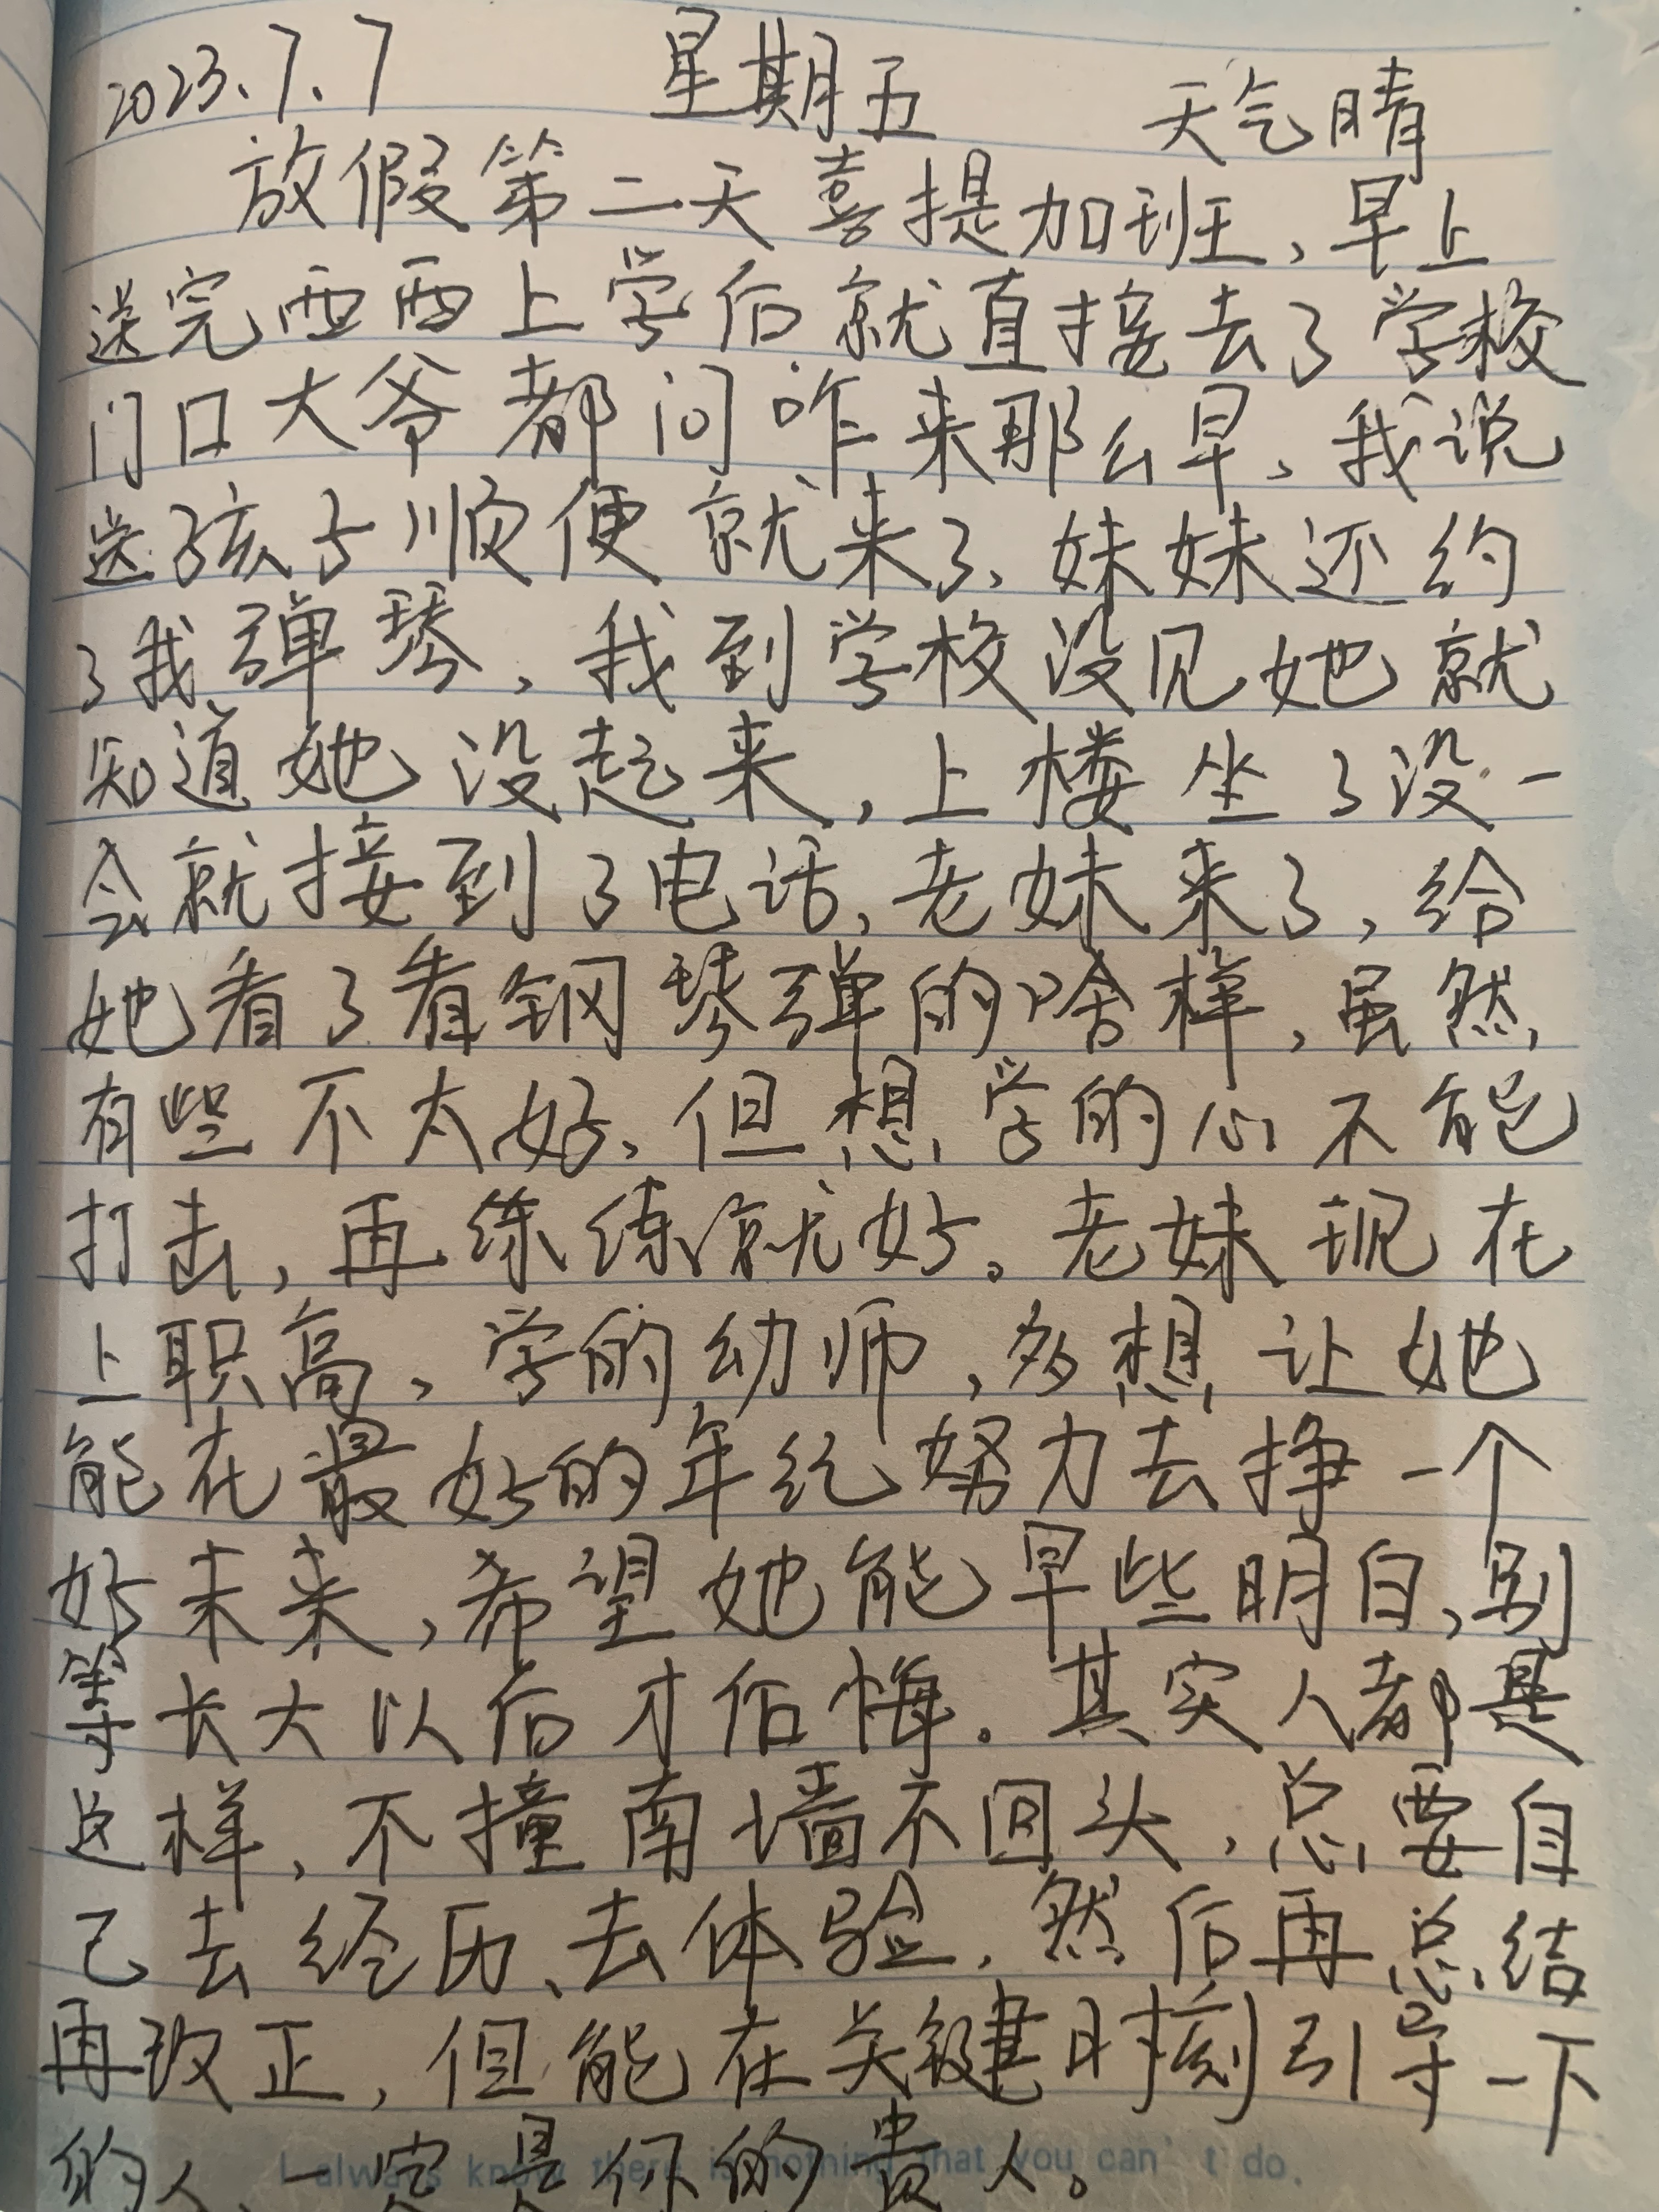 2023.7.7 星期五 天气晴
放假第二天喜提加班,早上
送完西西上学后就直接去了学校
门口大爷都问咋来那么早、我说
送孩子顺便就来了、妹妹还约
了我弹琴,我到学校没见她就
知道她没起来,上楼坐了没一
会就接到了电话,老妹来了,给
她看了看钢琴弹的啥样,虽然
有些不太好、但想学的心不能
打击,再练练就好。老妹现在
上职高,学的幼师,多想让她
能在最好的年纪努力去挣一个
好未来,希望她能早些明白,别
等长大以后才后悔。其实人都是
这样,不撞南墙不回头,总要自
己去经历、去体验,然后再总结
再改正,但能在关键时刻引导一下
的人、一定是你的贵人。
I always know there is nothing that you can't do.